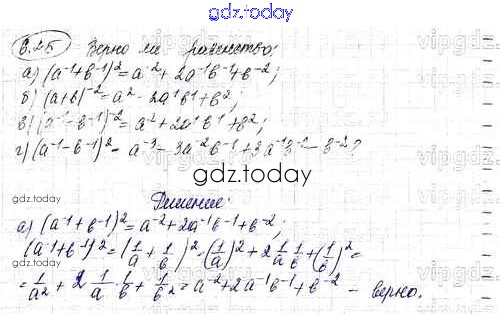 gdz.today
6.25 Верно ли равенство:
а) (a⁻¹+b⁻¹)² = a⁻² + 2a⁻¹b⁻¹+b⁻²;
б) (a+b)⁻² = a² - 2a¹b¹+b²;
в) (a⁻¹-b⁻¹)⁻² = a² + 2a¹b¹ + b²;
г) (a⁻¹-b⁻¹)² = a⁻³ - 3a⁻²b⁻¹+3a⁻¹b⁻² - b⁻²?
gdz.today
gdz.today
Решение:
а) (a⁻¹+b⁻¹)² = a⁻²+2a⁻¹b⁻¹+b⁻²;
(a⁻¹+b⁻¹)² = (1/a + 1/b)² = (1/a)² + 2 1/a 1/b + (1/b)² =
= 1/a² + 2 1/a · 1/b + 1/b² = a⁻²+2a⁻¹b⁻¹+b⁻² - верно.
gdz.today